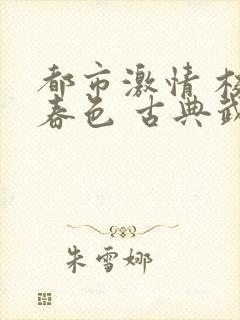 都市激情 校
春色 古典武
朱雪娜